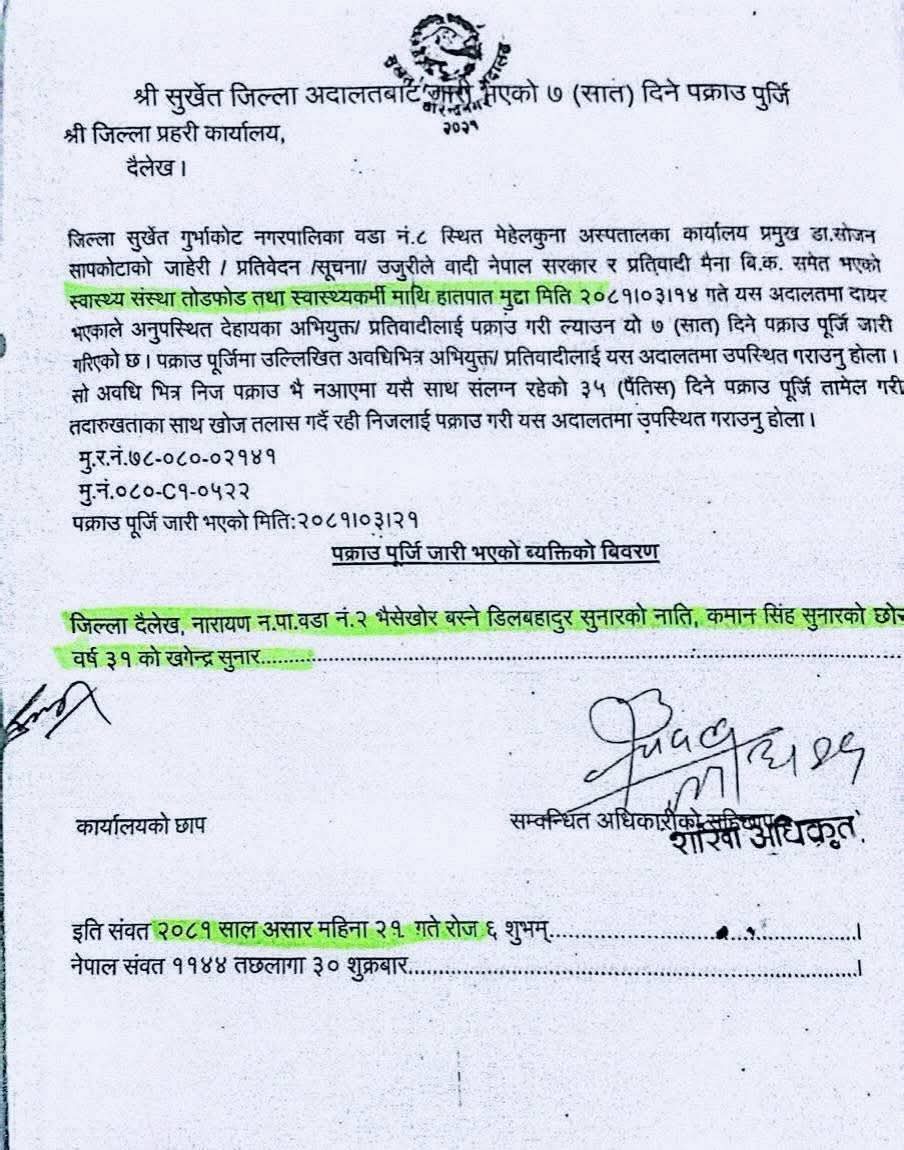 श्री सुर्खेत जिल्ला अदालतबाट जारी भएको ७ (सात) दिने पक्राउ पुर्जि
२०२१
श्री जिल्ला प्रहरी कार्यालय,
दैलेख।
जिल्ला सुर्खेत गुर्भाकोट नगरपालिका वडा नं.८ स्थित मेहेलकुना अस्पतालका कार्यालय प्रमुख डा.सोजन
सापकोटाको जाहेरी / प्रतिवेदन /सूचना/ उजुरीले वादी नेपाल सरकार र प्रतिवादी मैना बि.क. समेत भएको
स्वास्थ्य संस्था तोडफोड तथा स्वास्थ्यकर्मी माथि हातपात मुद्दा मिति २०८१।०३।१४ गते यस अदालतमा दायर
भएकाले अनुपस्थित देहायका अभियुक्त/ प्रतिवादीलाई पक्राउ गरी ल्याउन यो ७ (सात) दिने पक्राउ पूर्जि जारी
गरिएको छ। पक्राउ पूर्जिमा उल्लिखित अवधिभित्र अभियुक्त/ प्रतिवादीलाई यस अदालतमा उपस्थित गराउनु होला।
सो अवधि भित्र निज पक्राउ भै नआएमा यसै साथ संलग्न रहेको ३५ (पैंतिस) दिने पक्राउ पूर्जि तामेल गरी
तदारुखताका साथ खोज तलास गर्दै रही निजलाई पक्राउ गरी यस अदालतमा उपस्थित गराउनु होला।
मु.र.नं.७८-०८०-०२१४१
मु.नं.०८०-C१-०५२२
पक्राउ पूर्जि जारी भएको मिति:२०८१।०३।२१
पक्राउ पूर्जि जारी भएको ब्यक्तिको बिवरण
जिल्ला दैलेख, नारायण न.पा.वडा नं.२ भैसेखोर बस्ने डिलबहादुर सुनारको नाति, कमान सिंह सुनारको
वर्ष ३१ को खगेन्द्र सुनार
कार्यालयको छाप
सम्वन्धित अधिकारीको
शाखा अधिकृत
इति संवत २०८१ साल असार महिना २१ गते रोज ६ शुभम्
नेपाल संवत ११४४ तछलागा ३० शुक्रबार